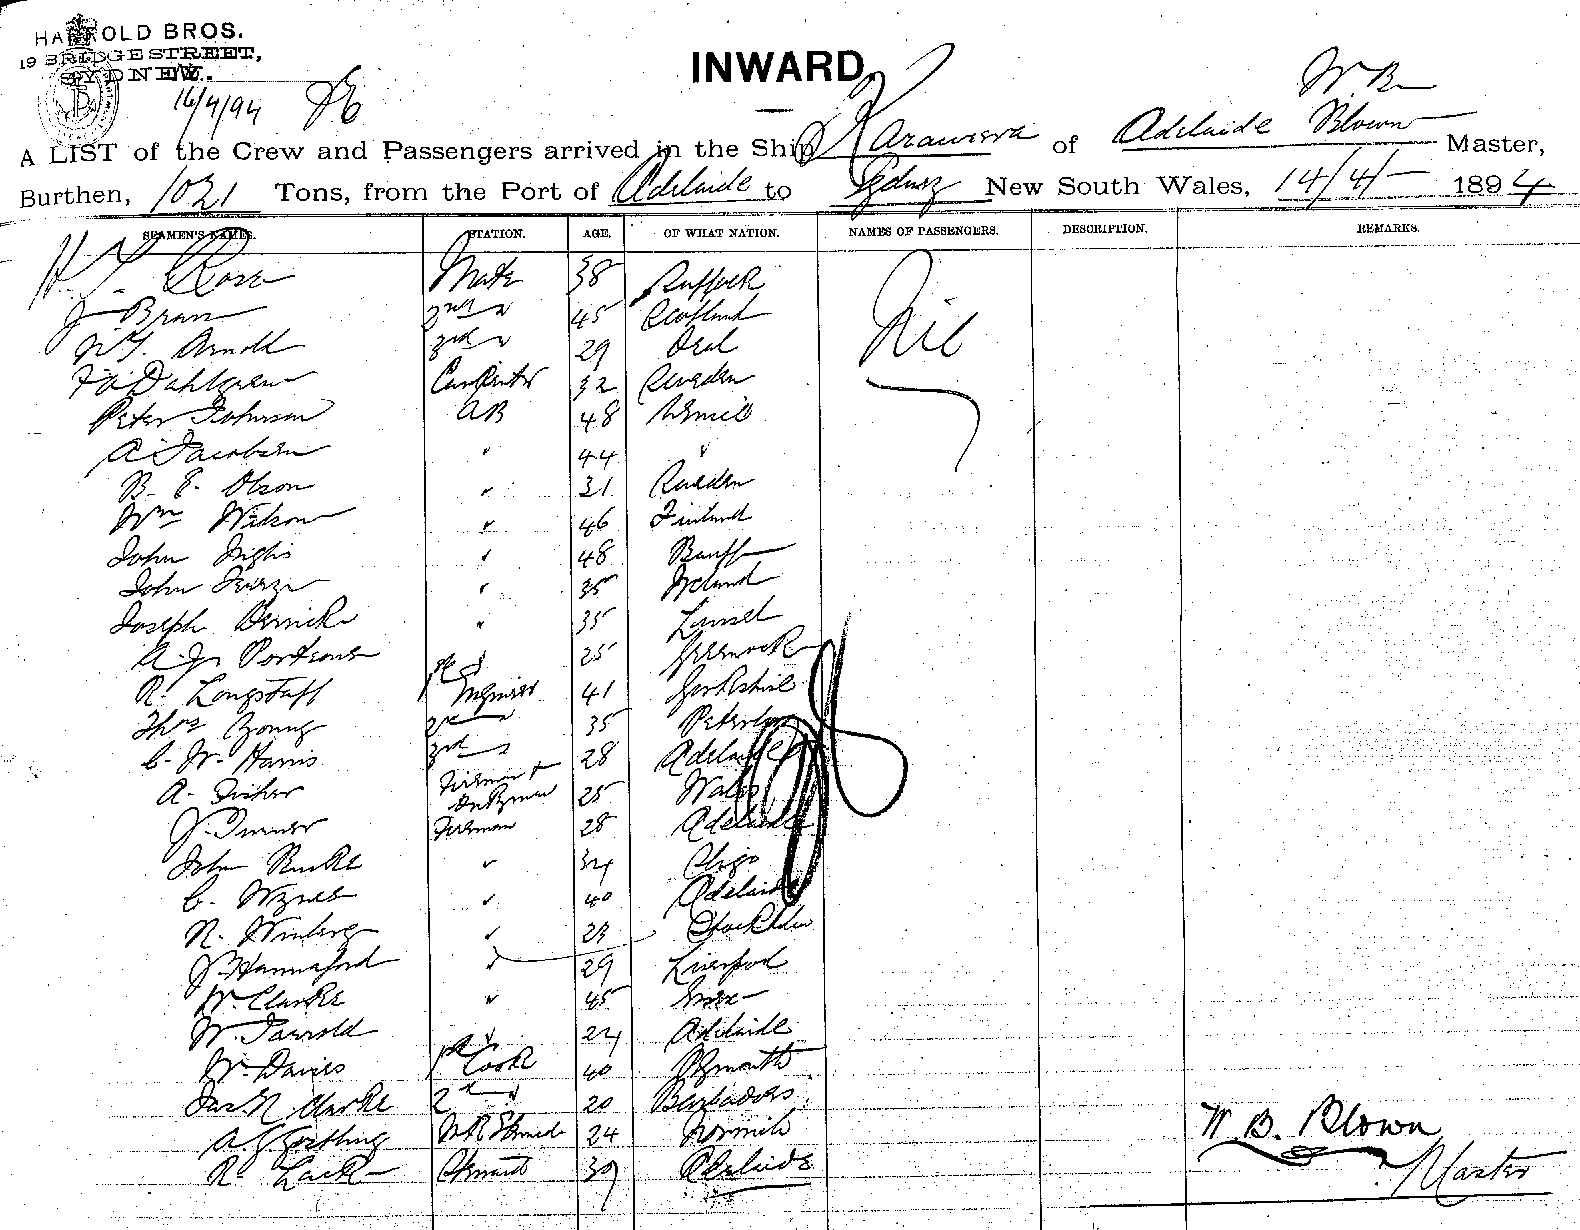 HARROLD BROS.
19 BRIDGE STREET,
SYDNEY.
INWARD
16/4/94
W. B.
A LIST of the Crew and Passengers arrived in the Ship Kaраweera of Adelaide Blown Master,
Burthen, 1021 Tons, from the Port of Adelaide to Sydney New South Wales, 14/4/- 1894
SEAMEN'S NAMES. STATION. AGE. OF WHAT NATION. NAMES OF PASSENGERS. DESCRIPTION. REMARKS.
Ross Mate 38 Suffolk Nil
J Bram 2nd " 45 Scotland
W J. Arnold 3rd " 29 Deal
Dahlgren Carpenter 32 Sweden
Peter Johnson AB 48
A Jacobsen " 44 "
B. E. Olson " 31 Sweden
Wm Wilson " 46 Finland
John Inglis " 48 Banff
John " 35 Ireland
Joseph Derrick " 35
A. Porteous " 25 Greenock
R. Longstaff 1st Engineer 41 Yorkshire
Thos Young 2nd " 35
C. W. Harris 3rd " 28 Adelaide
A. Fisher Fireman + 25 Wales
J. Turner Fireman 28 Adelaide
John Burke " 34 Sligo
C. Wynes " 40 Adelaide
N. Winberg " 29 Stockholm
J. Hannaford " 29 Liverpool
W. Clarke " 45
W. " 24 Adelaide
W. Davies 1st Cook 40 Plymouth
Clarke 2nd " 20 Barbadoes
A. G. Gostling 24 Norwich
R. Lack Steward 39 Adelaide
W. B. Blown
Master